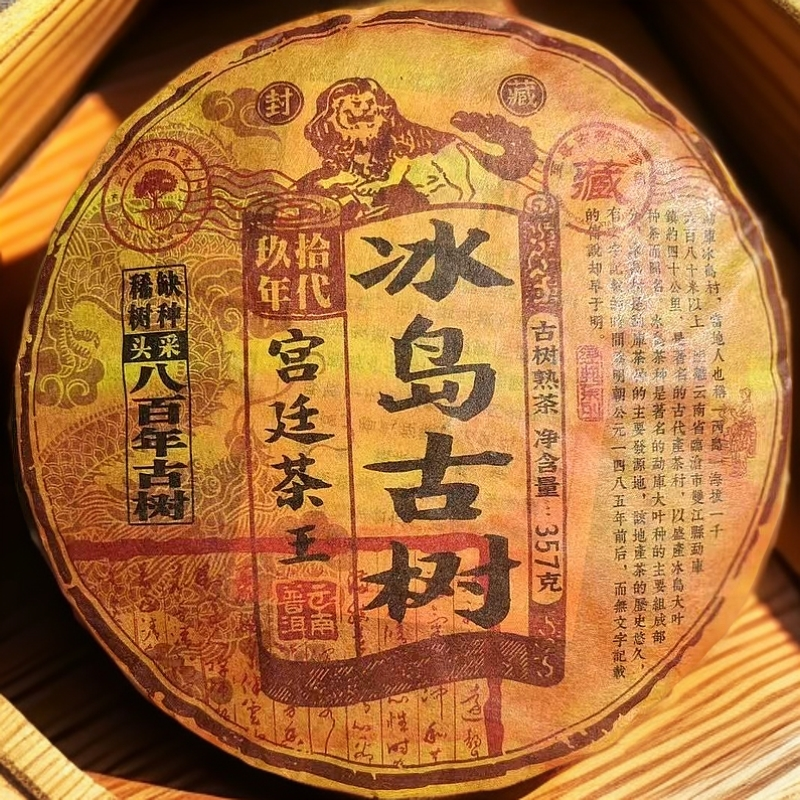 封
藏
藏
冰岛古树
拾代
玖年
宫廷茶王
云南
普洱
古树熟茶 净含量：357克
稀缺
树种
头采
八百年古树
勐庫冰島村，當地人也稱丙島，海拔一千
六百八十米以上，距離云南省臨滄市雙江縣勐庫
鎮約四十公里，是著名的古代產茶村，以盛產冰島大叶
种茶而聞名。冰島茶种是著名的勐庫大叶种的主要組成部
分。冰島村是勐庫茶种的主要發源地，該地產茶的歷史悠久，
有文字記載的時間為明朝公元一四八五年前后，而無文字記載
的傳說却早于明。